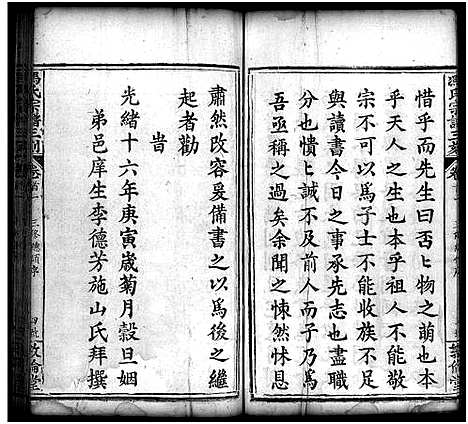 惜乎而先生曰否匕物之萌也本
乎天人之生也本乎祖人不能敬
宗不可以為子士不能收族不可
與讀書今日之事承先志也盡職
分也憒匕誠不及前人而子乃為
吾亟稱之過矣余聞之悚然怵息
肅然改容爰備書之以為後之繼
起者勸
旹
光緒十六年庚寅歲菊月穀旦姻
弟邑庠生李德芳施山氏拜撰
馮氏宗譜三刻
卷首一
敦倫堂